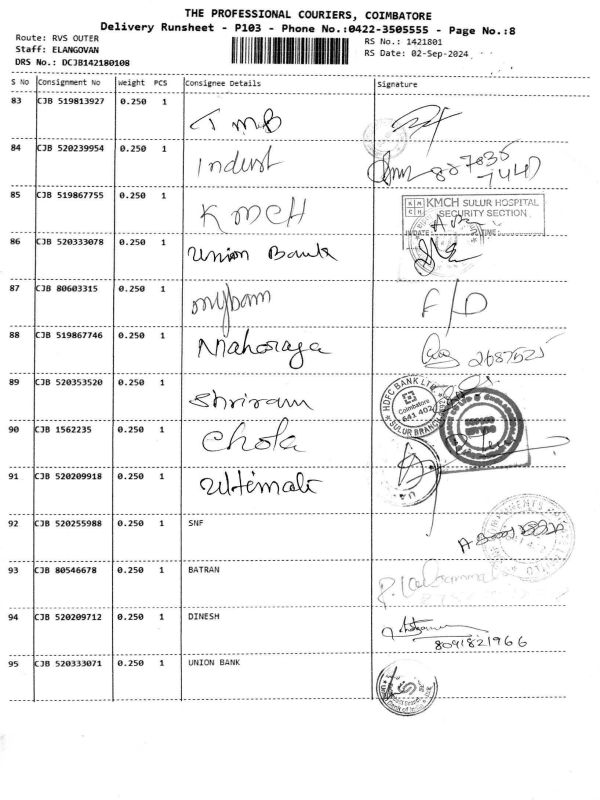 THE PROFESSIONAL COURIERS, COIMBATORE
Delivery Runsheet - P103 - Phone No.:0422-3505555 - Page No.:8
Route: RVS OUTER
Staff: ELANGOVAN
DRS No.: DCJB142180108
RS No.: 1421801
RS Date: 02-Sep-2024
S No Consignment No Weight PCS Consignee Details Signature
83 CJB 519813927 0.250 1 TMB
84 CJB 520239954 0.250 1 Indust
807835
7447
85 CJB 519867755 0.250 1 KMCH
KMCH SULUR HOSPITAL
SECURITY SECTION
DATE: TIME:
86 CJB 520333078 0.250 1 Union Bank
87 CJB 80603315 0.250 1 F/D
88 CJB 519867746 0.250 1 Maharaja 2687525
89 CJB 520353520 0.250 1 Shriram
HDFC BANK LTD
Coimbatore
641 402
SULUR BRANCH
90 CJB 1562235 0.250 1 Chola
91 CJB 520209918 0.250 1 Ultimate
92 CJB 520255988 0.250 1 SNF
93 CJB 80546678 0.250 1 BATRAN
94 CJB 520209712 0.250 1 DINESH
8091821966
95 CJB 520333071 0.250 1 UNION BANK